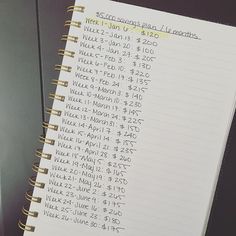 $5,000 savings plan / 6 months
Week 1-Jan 6 $120
Week 2-Jan 13 $200
Week 3-Jan 20 $100
Week 4-Jan 27 $205
Week 5-Feb 3 $130
Week 6-Feb 10 $220
Week 7-Feb 17 $135
Week 8-Feb 24 $215
Week 9-March 3 $140
Week 10-March 10 $230
Week 11-March 17 $145
Week 12-March 24 $235
Week 13-March 31 $150
Week 14-April 7 $240
Week 15-April 14 $155
Week 16-April 21 $235
Week 17-April 28 $260
Week 18-May 5 $255
Week 19-May 12 $165
Week 20-May 19 $265
Week 21-May 26 $170
Week 22-June 2 $245
Week 23-June 9 $175
Week 24-June 16 $260
Week 25-June 23 $180
Week 26-June 30 $175